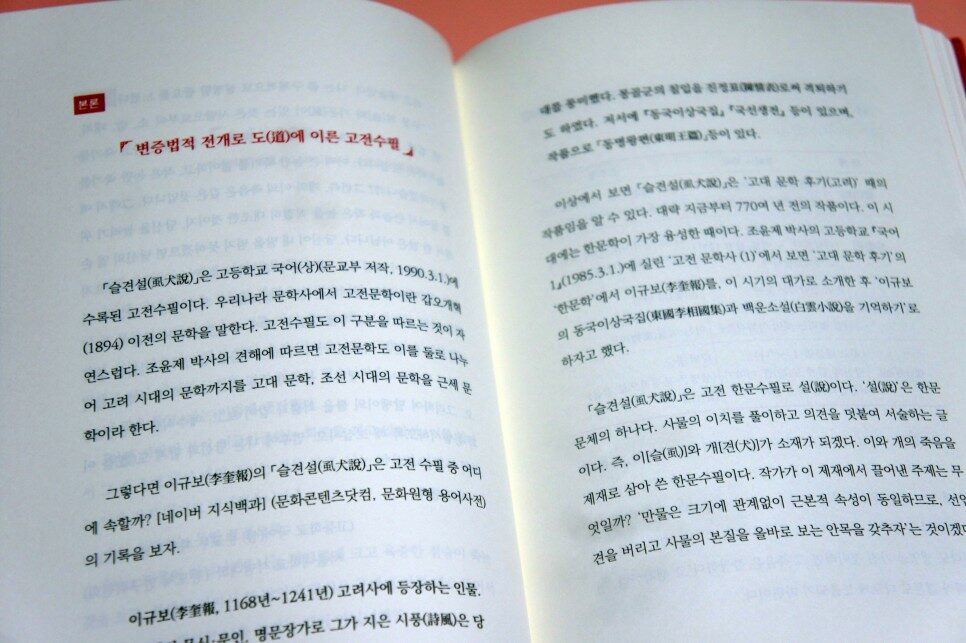 본론
『변증법적 전개로 도(道)에 이른 고전수필』
「슬견설(虱犬說)」은 고등학교 국어(상)(문교부 저작, 1990.3.1.)에
수록된 고전수필이다. 우리나라 문학사에서 고전문학이란 갑오개혁
(1894) 이전의 문학을 말한다. 고전수필도 이 구분을 따르는 것이 자
연스럽다. 조윤제 박사의 견해에 따르면 고전문학도 이를 둘로 나누
어 고려 시대의 문학까지를 고대 문학, 조선 시대의 문학을 근세 문
학이라 한다.
그렇다면 이규보(李奎報)의 「슬견설(虱犬說)」은 고전 수필 중 어디
에 속할까? [네이버 지식백과] (문화콘텐츠닷컴, 문화원형 용어사전)
의 기록을 보자.
이규보(李奎報, 1168년~1241년) 고려사에 등장하는 인물.
문신·문인, 명문장가로 그가 지은 시풍(詩風)은 당
대를 풍미했다. 몽골군의 침입을 진정표(陳情表)로써 격퇴하기
도 하였다. 저서에 『동국이상국집』, 『국선생전』 등이 있으며,
작품으로 「동명왕편(東明王篇)」등이 있다.
이상에서 보면 「슬견설(虱犬說)」은 '고대 문학 후기(고려)' 때의
작품임을 알 수 있다. 대략 지금부터 770여 년 전의 작품이다. 이 시
대에는 한문학이 가장 융성한 때이다. 조윤제 박사의 고등학교 『국어
1』(1985.3.1.)에 실린 '고전 문학사 (1)'에서 보면 '고대 문학 후기'의
'한문학'에서 이규보(李奎報)를, 이 시기의 대가로 소개한 후 '이규보
의 동국이상국집(東國李相國集)과 백운소설(白雲小說)을 기억하기'로
하자고 했다.
「슬견설(虱犬說)」은 고전 한문수필로 설(說)이다. '설(說)'은 한문
문체의 하나다. 사물의 이치를 풀이하고 의견을 덧붙여 서술하는 글
이다. 즉, 이[슬(虱)]와 개[견(犬)]가 소재가 되겠다. 이와 개의 죽음을
제재로 삼아 쓴 한문수필이다. 작가가 이 제재에서 끌어낸 주제는 무
엇일까? '만물은 크기에 관계없이 근본적 속성이 동일하므로, 선입
견을 버리고 사물의 본질을 올바로 보는 안목을 갖추자'는 것이겠다